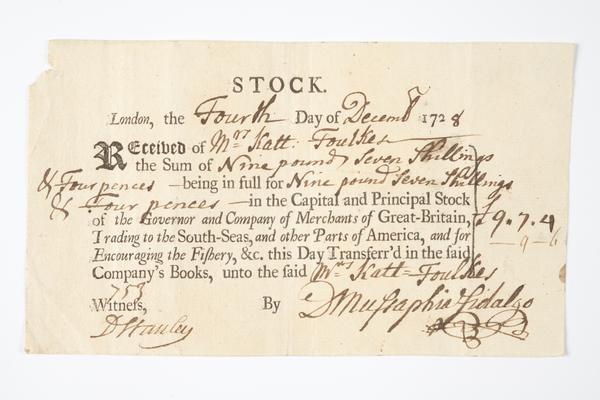 STOCK.
London, the Fourth Day of Decembr 1728
REceived of Mrs Katt: Foulkes
the Sum of Nine pounds Seven Shillings
& Four pences —being in full for Nine pound Seven Shillings
& Four pences —in the Capital and Principal Stock
of the Governor and Company of Merchants of Great-Britain, 9.7.4
Trading to the South-Seas, and other Parts of America, and for —9—6
Encouraging the Fishery, &c. this Day Transferr'd in the said
Company's Books, unto the said Mrs Katt= Foulkes
753
Witness, By DMussaphia Fidalgo
DHanley